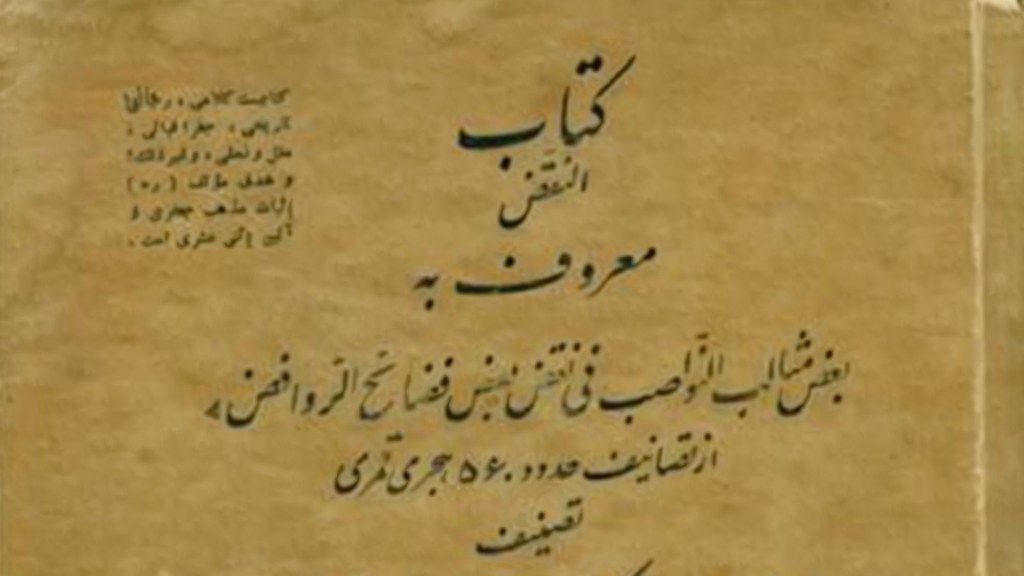 کتاب
النقض
معروف به
بعض مثالب النّواصب فی نقض بعض فضائح الرّوافض»
از تصانیف حدود ۵۶۰ هجری قمری
تصنیف
کتابیست کلامی، رجالی،
تاریخی، جغرافیائی،
ملل و نحلی، و غیر ذلک؛
و هدف مؤلف (ره)
إثبات مذهب جعفری و
آئین إثنی عشری است.